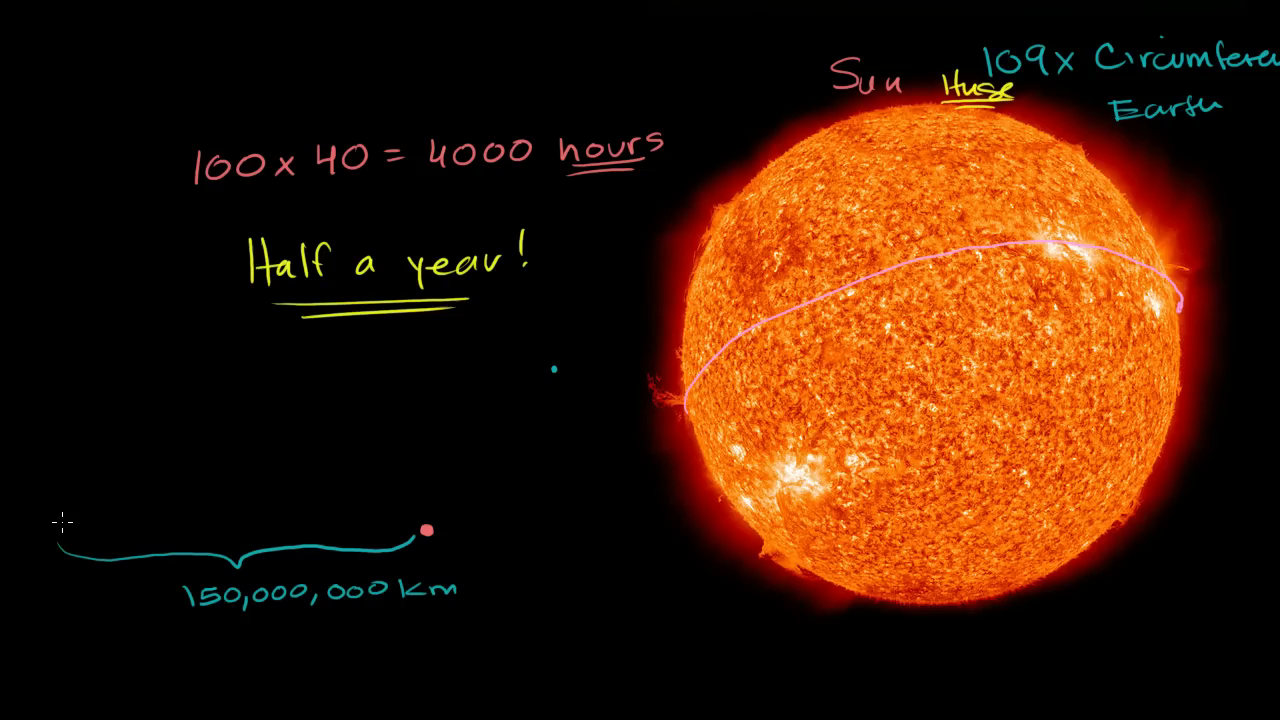 Sun Huge 109x Circumferen
Earth
100 x 40 = 4000 hours
Half a year!
150,000,000 km